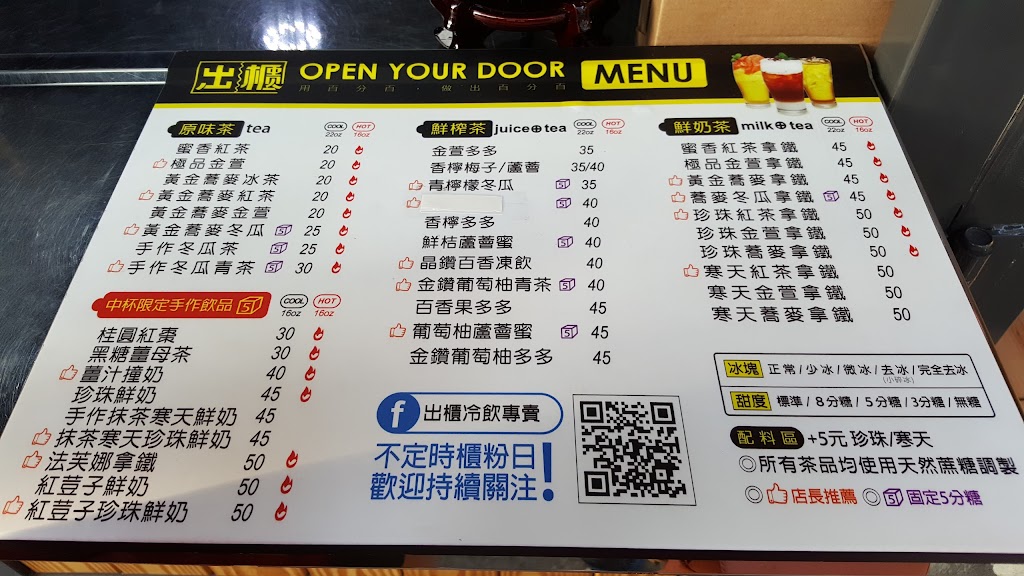 出櫃 OPEN YOUR DOOR MENU
用百分百．做出百分百
原味茶 tea COOL 22oz HOT 16oz
蜜香紅茶 20
極品金萱 20
黃金蕎麥冰茶 20
黃金蕎麥紅茶 20
黃金蕎麥金萱 20
黃金蕎麥冬瓜 5分 25
手作冬瓜茶 5分 25
手作冬瓜青茶 5分 30
中杯限定手作飲品 5分 COOL 16oz HOT 16oz
桂圓紅棗 30
黑糖薑母茶 30
薑汁撞奶 40
珍珠鮮奶 45
手作抹茶寒天鮮奶 45
抹茶寒天珍珠鮮奶 45
法芙娜拿鐵 50
紅荳子鮮奶 50
紅荳子珍珠鮮奶 50
鮮榨茶 juice⊕tea COOL 22oz HOT 16oz
金萱多多 35
香檸梅子/蘆薈 35/40
青檸檬冬瓜 5分 35
5分 40
香檸多多 40
鮮桔蘆薈蜜 5分 40
晶鑽百香凍飲 40
金鑽葡萄柚青茶 5分 40
百香果多多 45
葡萄柚蘆薈蜜 5分 45
金鑽葡萄柚多多 45
f 出櫃冷飲專賣
不定時櫃粉日
歡迎持續關注!
鮮奶茶 milk⊕tea COOL 22oz HOT 16oz
蜜香紅茶拿鐵 45
極品金萱拿鐵 45
黃金蕎麥拿鐵 45
蕎麥冬瓜拿鐵 5分 45
珍珠紅茶拿鐵 50
珍珠金萱拿鐵 50
珍珠蕎麥拿鐵 50
寒天紅茶拿鐵 50
寒天金萱拿鐵 50
寒天蕎麥拿鐵 50
冰塊 正常/少冰/微冰/去冰/完全去冰
(小碎冰)
甜度 標準/8分糖/5分糖/3分糖/無糖
配料區 +5元 珍珠/寒天
◎所有茶品均使用天然蔗糖調製
◎店長推薦 ◎5分 固定5分糖